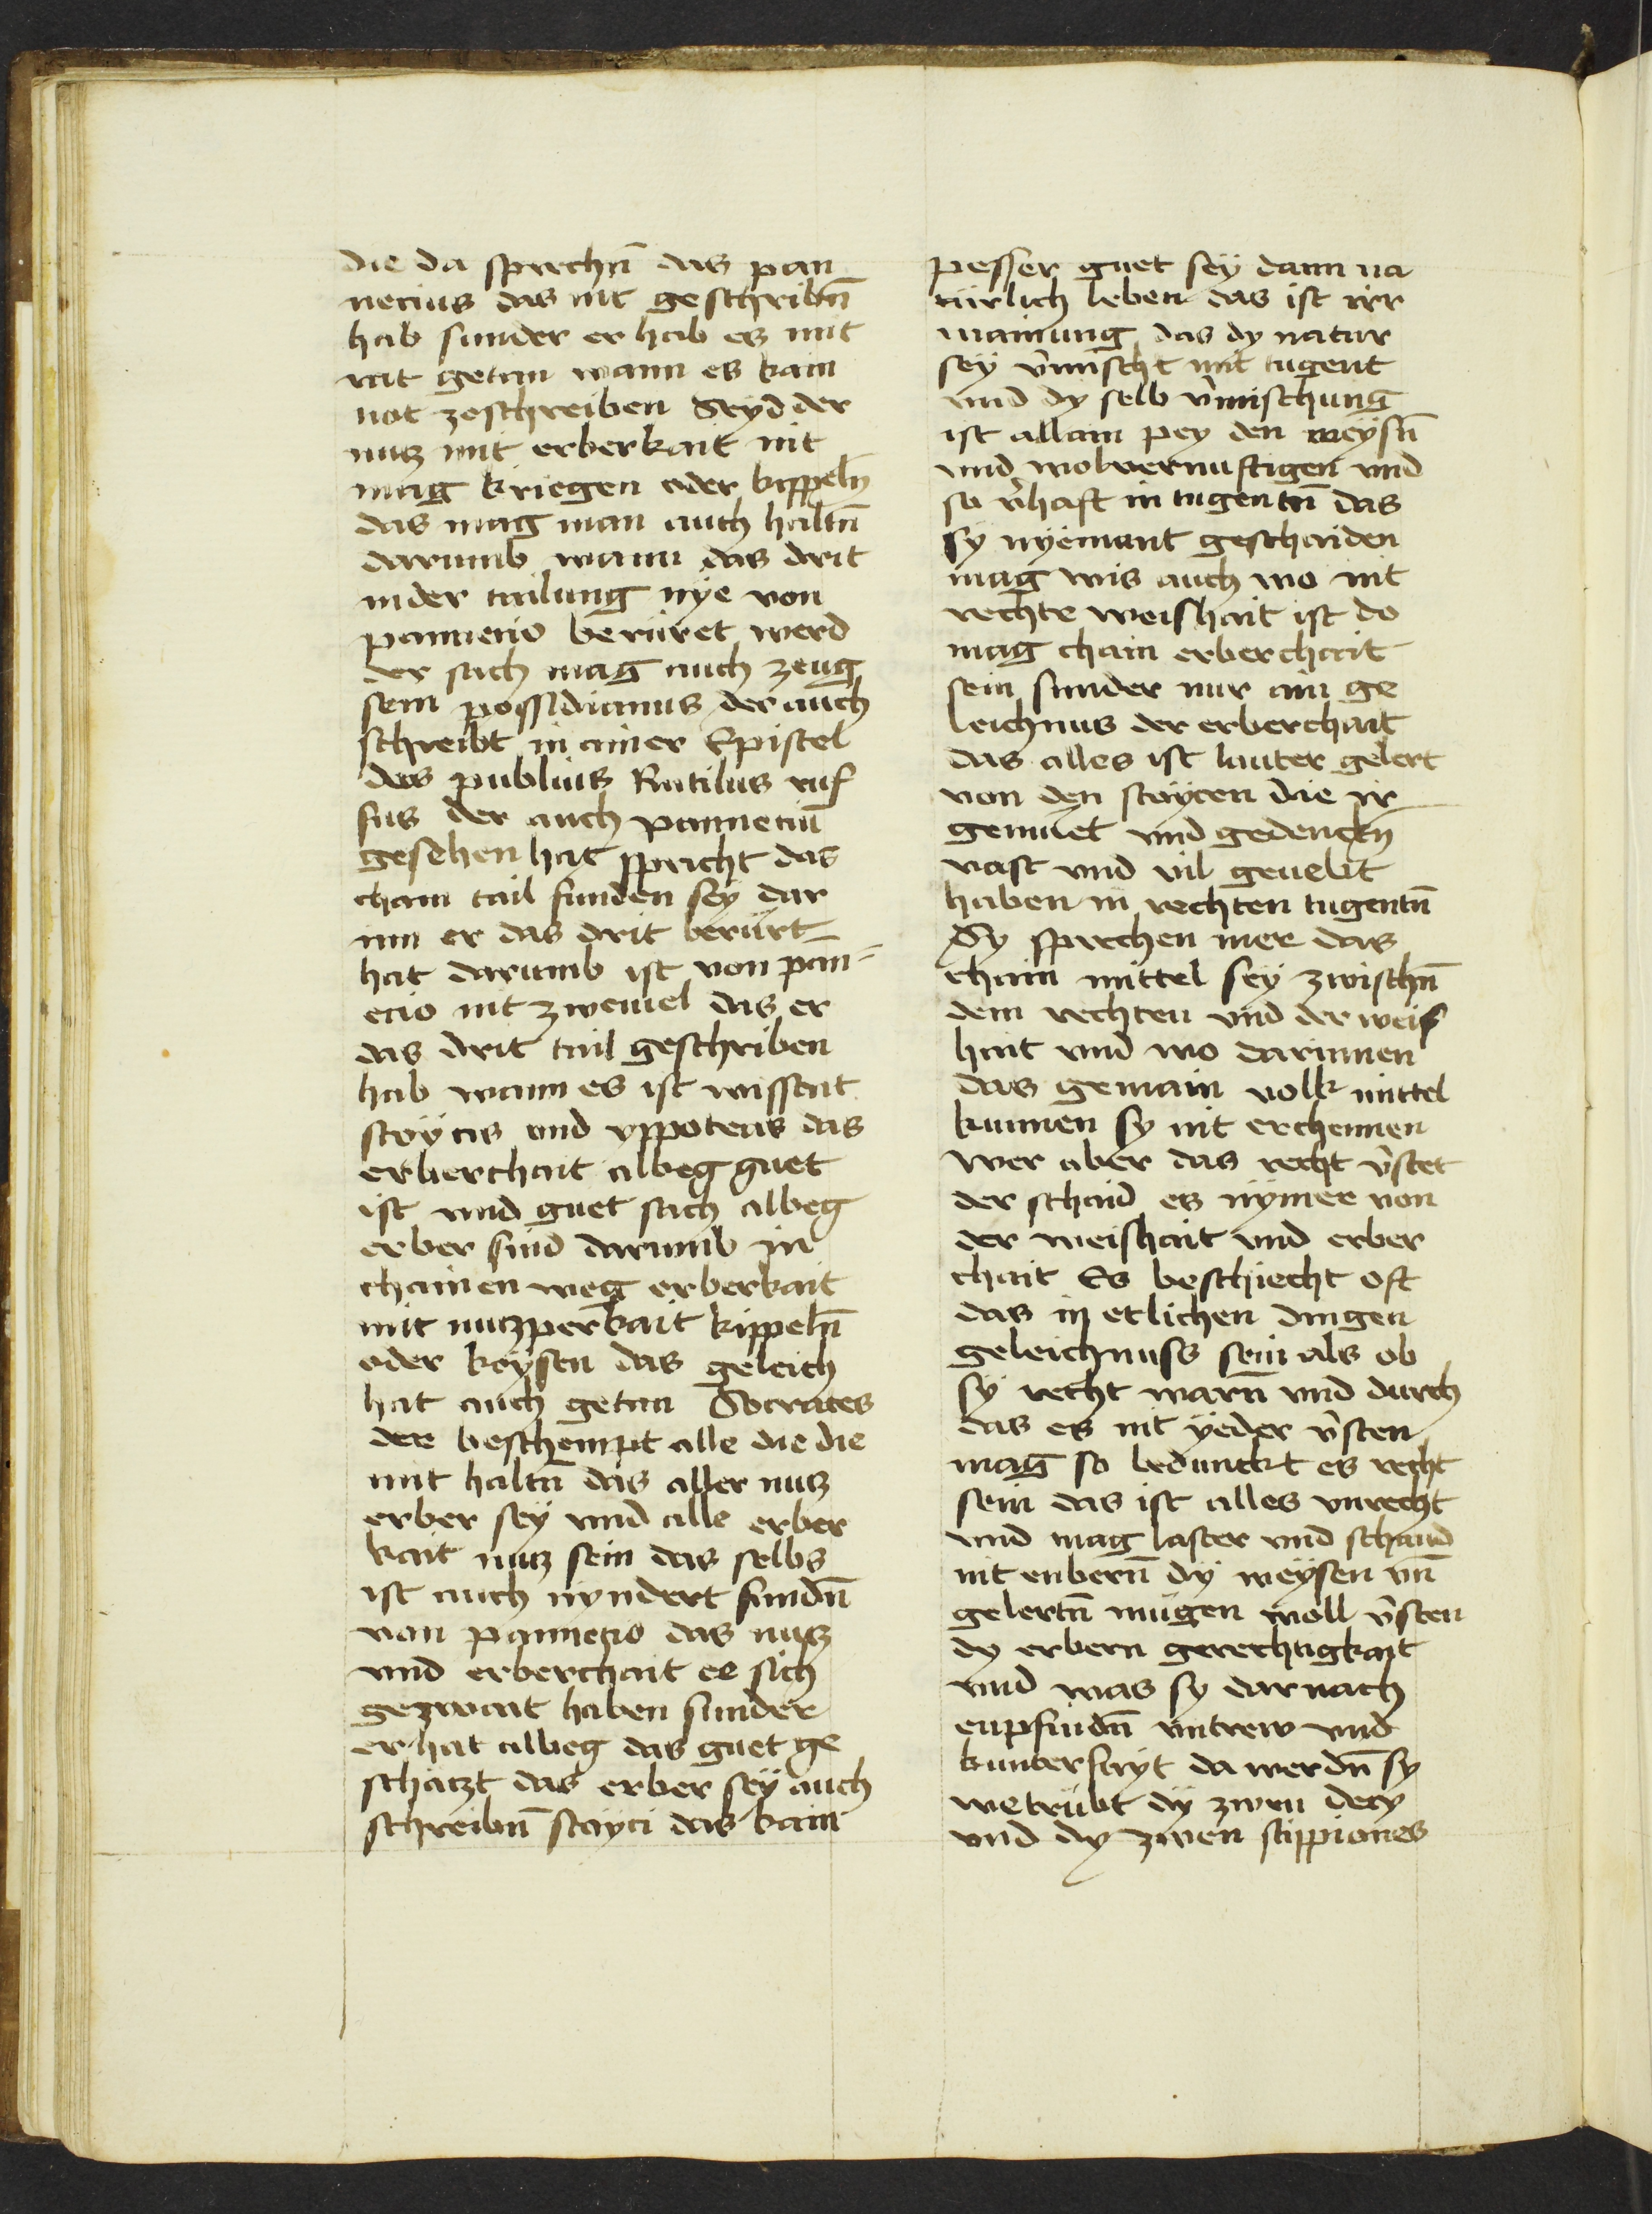 die da sprechn̄ das pan
necius das nit geschribn̄
hab sunder er hab es mit
rat getan wann es kain
not zeschreiben Seyd der
nutz mit erberkait nit
mag kriegen oder kippeln
das mag man auch haltn̄
darumb wann das drit
inder tailung nÿe von
pannecio berüret werd
der sach mag auch zeug
sein possidianus der auch
schreibt in ainer Epistel
das publius Rutilus ruf
fus der auch pannetiū
gesehen hat spricht das
chain tail funden sey dar
inn er das drit berürt
hat darumb ist von pan⸗
ecio nit zweiuel das er
das drit tail geschriben
hab wann es ist wissent
stoÿcis vnd yppotecis das
erberchait albeg guet
ist vnd guet sach albeg
erber sind darumb in
chainen weg erberkait
mit nutzperkait kippeln̄
oder keysten das geleich
hat auch getan Socrates
der beschempt alle die die
mit haltn̄ das aller nutz
erber sey vnd alle erber
kait nutz sein das selbs
ist auch nyndert fundn̄
von pannecio das nutz
vnd erberchait ee sich
gezwait haben sunder
er hat albeg das guet ge
schatzt das erber sey auch
schreibn̄ stoyci das kain
pesser guet sey dann na
türlich leben das ist irr
mainung das dy natur
sey v̂mischt mit tugent
vnd dy selb v̂mischung
ist allain pey den weysn̄
vnd wolvernuftigen vnd
so v̂haft in tugentn̄ das
sy nÿemant geschaiden
mag wis auch wo nit
rechte weishait ist do
mag chain erberchait
sein sunder nur ain ge
leichnus der erberchait
das alles ist lauter gelert
von den stoÿcen die ir
gemuet vnd gedencken
vast vnd vil geuebt
haben in rechten tugentn̄
Sy sprechen mer das
chain mittel sey zwischn̄
dem rechten vnd der weis
hait vnd wo darinnen
das gemain volk mittel
kunnen sy nit erchennen
wer aber das recht v̂stet
der schaid es nymer von
der weishait vnd erber
chait Es beschiecht oft
das in etlichen dingen
geleichnuss sein als ob
sy recht warn̄ vnd durch
das es nit yeder v̂sten
mag so bedunckt es recht
sein das ist alles vnrecht
vnd mag laster vnd schand
nit enbern̄ dy weysen vn̄
gelertn̄ mügen woll v̂sten
dy erbern gerechtigkait
vnd was sy darnach
enpfindn̄ vntrew vnd
kunterfayt da werdn̄ sy
wetrübt dy zwen decy
vnd dy zwen scippiones